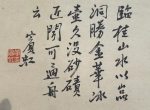 臨桂山水以巖
洞勝金華冰
壺久没砂磧
近聞可通舟
云 賓虹